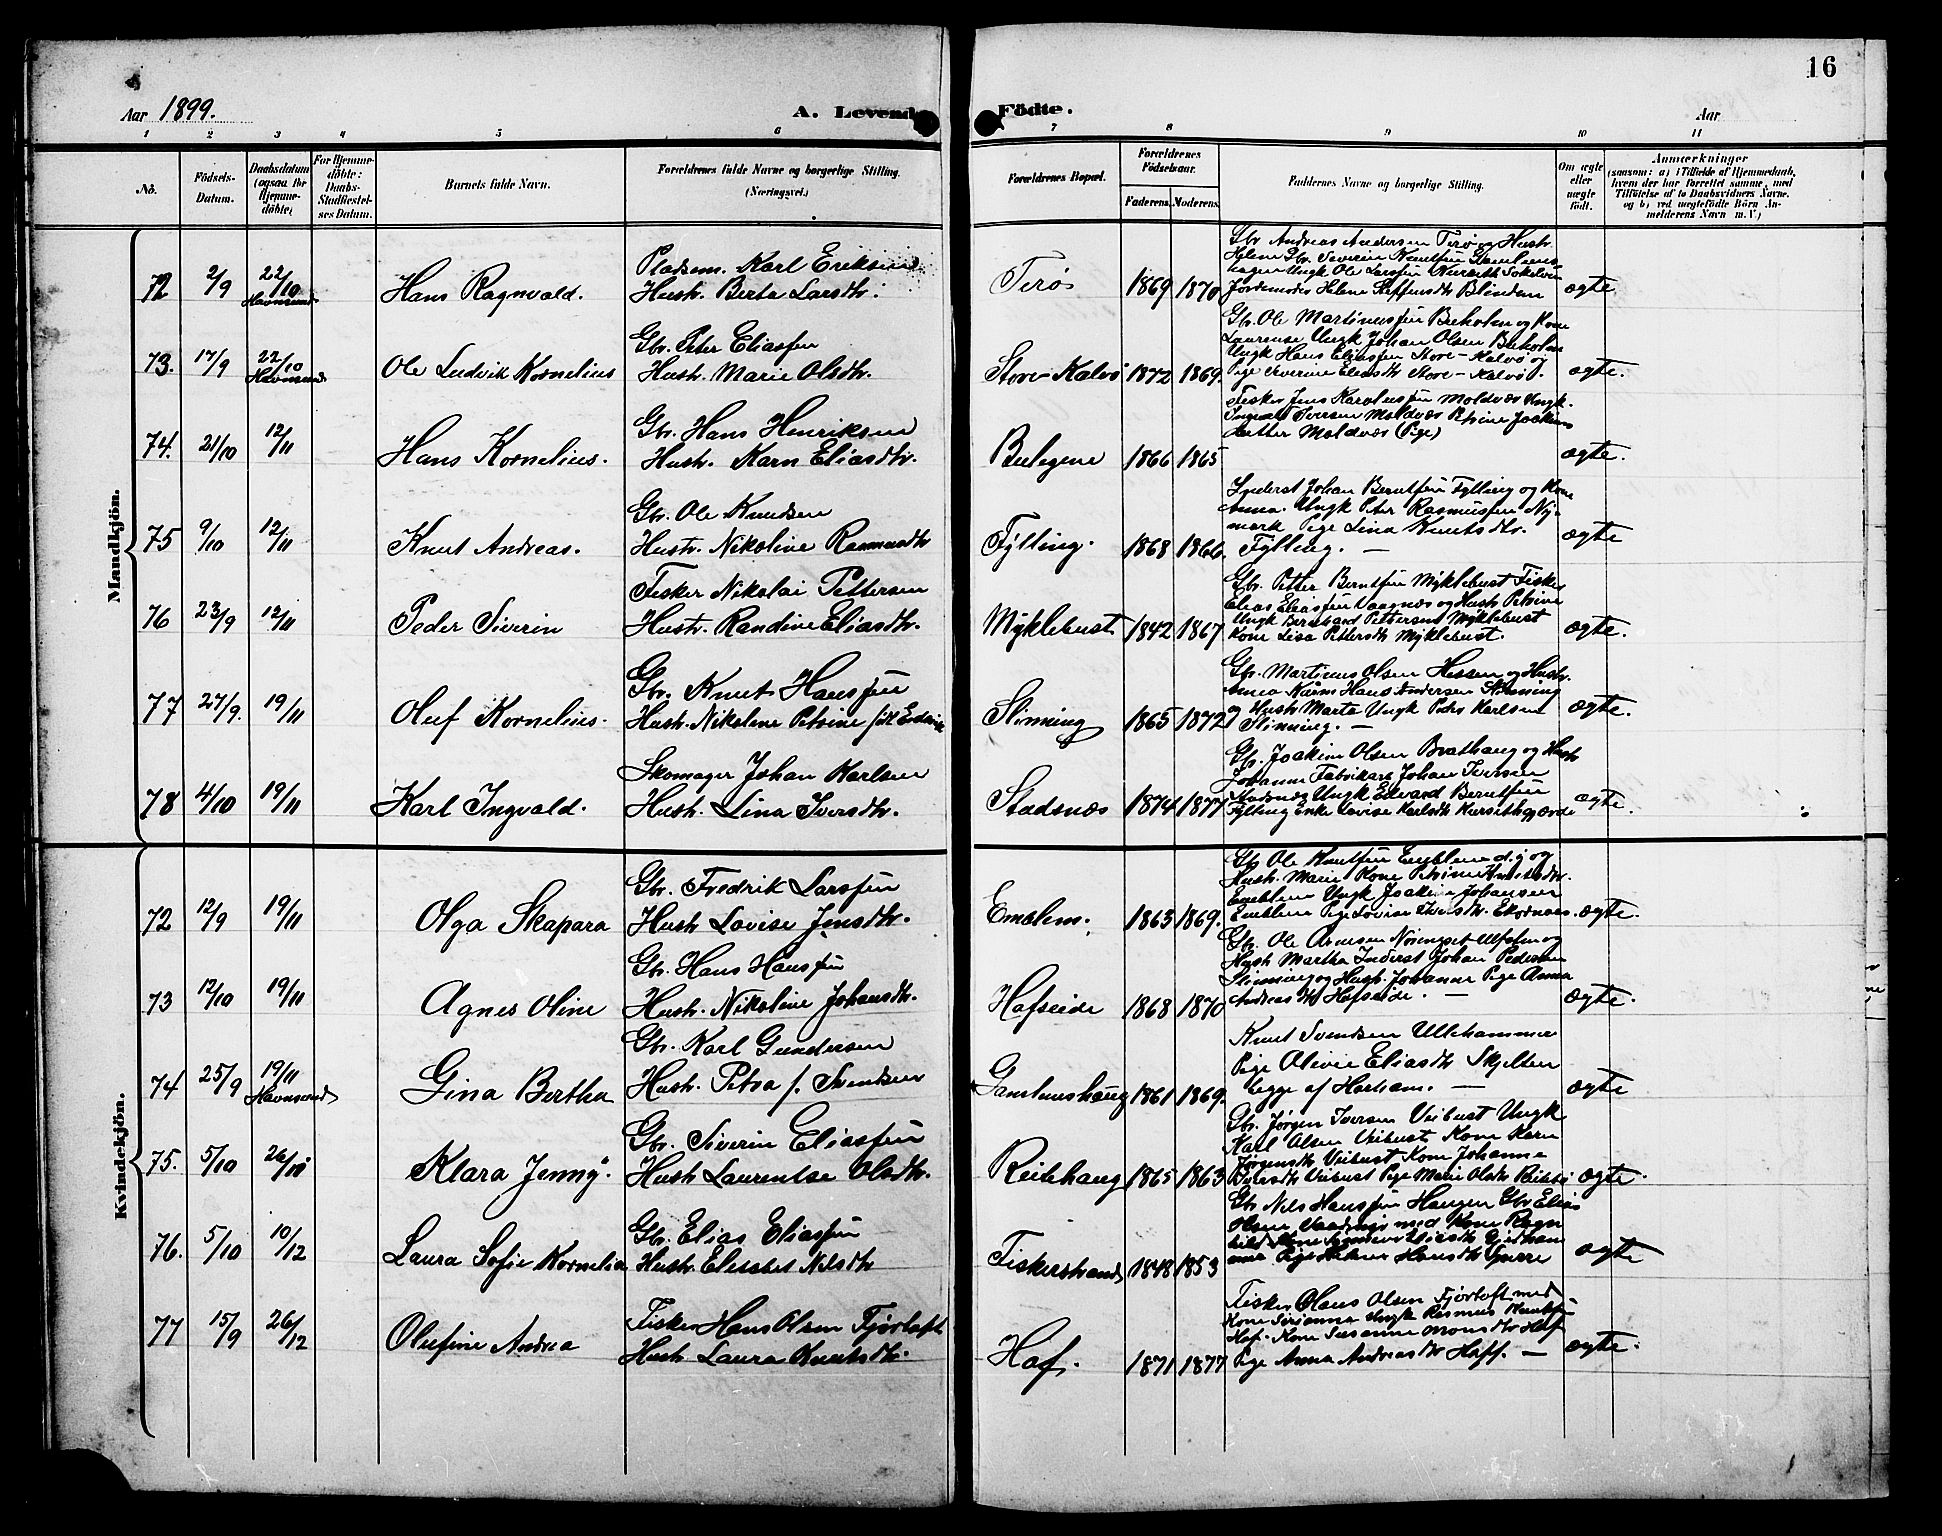 16
Aar 1899.
A. Levende Födte.
Aar
1 2 3 4 5 6 7 8 9 10 11
No.
Födsels-Datum.
Daabsdatum (ogsaa for Hjemme-döbte)
For Hjemme-döbte: Daabs-Stadfæstel-ses Datum.
Barnets fulde Navn.
Forældrenes fulde Navne og borgerlige Stilling. (Næringsvei.)
Forældrenes Bopæl.
Forældrenes Födselsaar.
Faderens. Moderens.
Faddernes Navne og borgerlige Stilling.
Om ægte eller uægte födt.
Anmærkninger
(saasom: a) i Tilfælde af Hjemmedaab, hvem der har forrettet samme, med Tilföielse af to Daabsvidners Navne. og b) ved uægtefödte Börn An-melderens Navn m. V.)
Mandkjön.
72 2/9 22/10 Havnsund Hans Ragnvald.
Pladsm. Karl Eriksen
Hustr. Berta Larsdtr.
Terø 1869 1870
Gbr Andreas Andersen Terø og Hustr.
Helene Gbr. Severin Knutsen
Ungk Ole Larsen
Jordemoder Helene Steffensdtr Blindem
ægte
73. 17/9 22/10 Havnsund Ole Ludvik Kornelius
Gbr. Peter Eliassen
Hustr. Marie Olsdtr.
Store-Kalvø 1872 1869.
Gbr. Ole Martinussen Beholm og Kone
Laurense Ungk Johan Olsen Beholm
Ungk Hans Eliassen Store-Kalvø og
Pige Severine Eliasdtr Store-Kalvø.
ægte.
74. 21/10 12/11 Hans Kornelius.
Gbr. Hans Henriksen
Hustr. Karn Eliasdtr.
1866 1865
Fisker Jens Karolussen Moldvær Ungk.
Ingvald Iversen Moldvær Petrine Joakims
datter Moldvær (Pige)
ægte.
75 9/10 12/11 Knut Andreas.
Gbr. Ole Knudsen
Hustr. Nikoline Rasmusdtr
Fylling. 1868 1866.
Inderst Johan Berntsen Fylling og Kone
Anna. Ungk Peter Rasmussen Ny-
mark Pige Lina Knutsdtr.
Fylling. —
ægte
76 23/9 12/11 Peder Siverin
Fisker Nikolai Pettersen
Hustr. Randine Eliasdtr.
Myklebust 1842 1867
Gbr. Petter Berntsen Myklebust Fisker
Elias Eliassen Vaagnæs og Hustr Petrine
Ungk Bernhard Pettersen Myklebust
Kone Lisa Pettersdtr Myklebust.
ægte.
77 27/9. 19/11 Oluf Kornelius.
Gbr. Knut Hanssen
Hustr. Nikoline Petrine født
Slinning 1865 1872
Gbr. Martinus Olsen Hessen og Hustr.
Anna Hans Andersen Slinning
og Hustr Marta Ungk Peder Karlsen
Slinning. —
ægte.
78 4/10 19/11 Karl Ingvald.
Skomager Johan Karlsen
Hustr. Lina Iversdtr.
Stadsnæs 1874 1877
Gbr. Joakim Olsen Brathaug og Hustr
Johanne Fabrikarb Johan Iversen
Stadsnæs Ungk Edvard Berntsen
Fylling Enke Lovise Karlsdtr
ægte
Kvindekjön.
72 12/9 19/11 Olga Skapara
Gbr. Fredrik Larssen
Hustr Lovise Jensdtr.
Emblem. 1863 1869.
Gbr Ole Knutsen Emblem og
Hustr. Marie Kone Petrine
Emblem Ungk Joakim Johansen
Emblem Pige Lovise Iversdtr. Ekornæs
ægte.
73 12/10 19/11 Agnes Oline
Gbr. Hans Hanssen
Hustr. Nikoline Johansdtr.
Hafseide 1868 1870
Gbr. Ole
Hustr Martha Inderst Johan Pedersen
Slinning og Hustr. Johanne Pige Anna
Andreasdtr Hofseide. —
ægte.
74 25/9 19/11 Havnsund Gina Bertha
Gbr. Karl Gundersen
Hustr. Petra f. Svendsen
Gamlemshaug 1861 1869.
Knut Svendsen Ullehammer
Pige Olivie Eliasdtr Skjelten
begge af Harham. —
ægte
75. 5/10 26/11 Klara Jenny.
Gbr. Siverin Eliassen
Hustr Laurentse Olsdtr.
Reitehaug 1865 1863
Gbr. Jørgen Iversen Veibust Ungk
Karl Olsen Veibust Kone Karn
Jørgensdtr Veibust Kone Johanne
Iversdtr Veibust Pige Marie Olsdtr
ægte.
76. 5/10 10/12 Laura Sofie Kornelia
Gbr. Elias Eliassen
Hustr. Elisabet Nilsdtr
Fiskerstrand 1848 1853
Gbr Nils Hanssen Haugen Gbr Elias
med Kone Ragn
hild
Pige Helene Hansdtr Sperre
ægte
77 15/9 26/12 Olufine Andrea
Fisker Hans Olsen Fjørtoft
Hustr Laura Knutsdtr.
Haf. 1871 1877
Fisker Olaus Olsen Fjørtoft med
Kone Serianna Ungk Rasmus Knuts-
Haf. Kone Susanne Monsdtr Haf
Pige Anna Andreasdtr Haff. —
ægte.